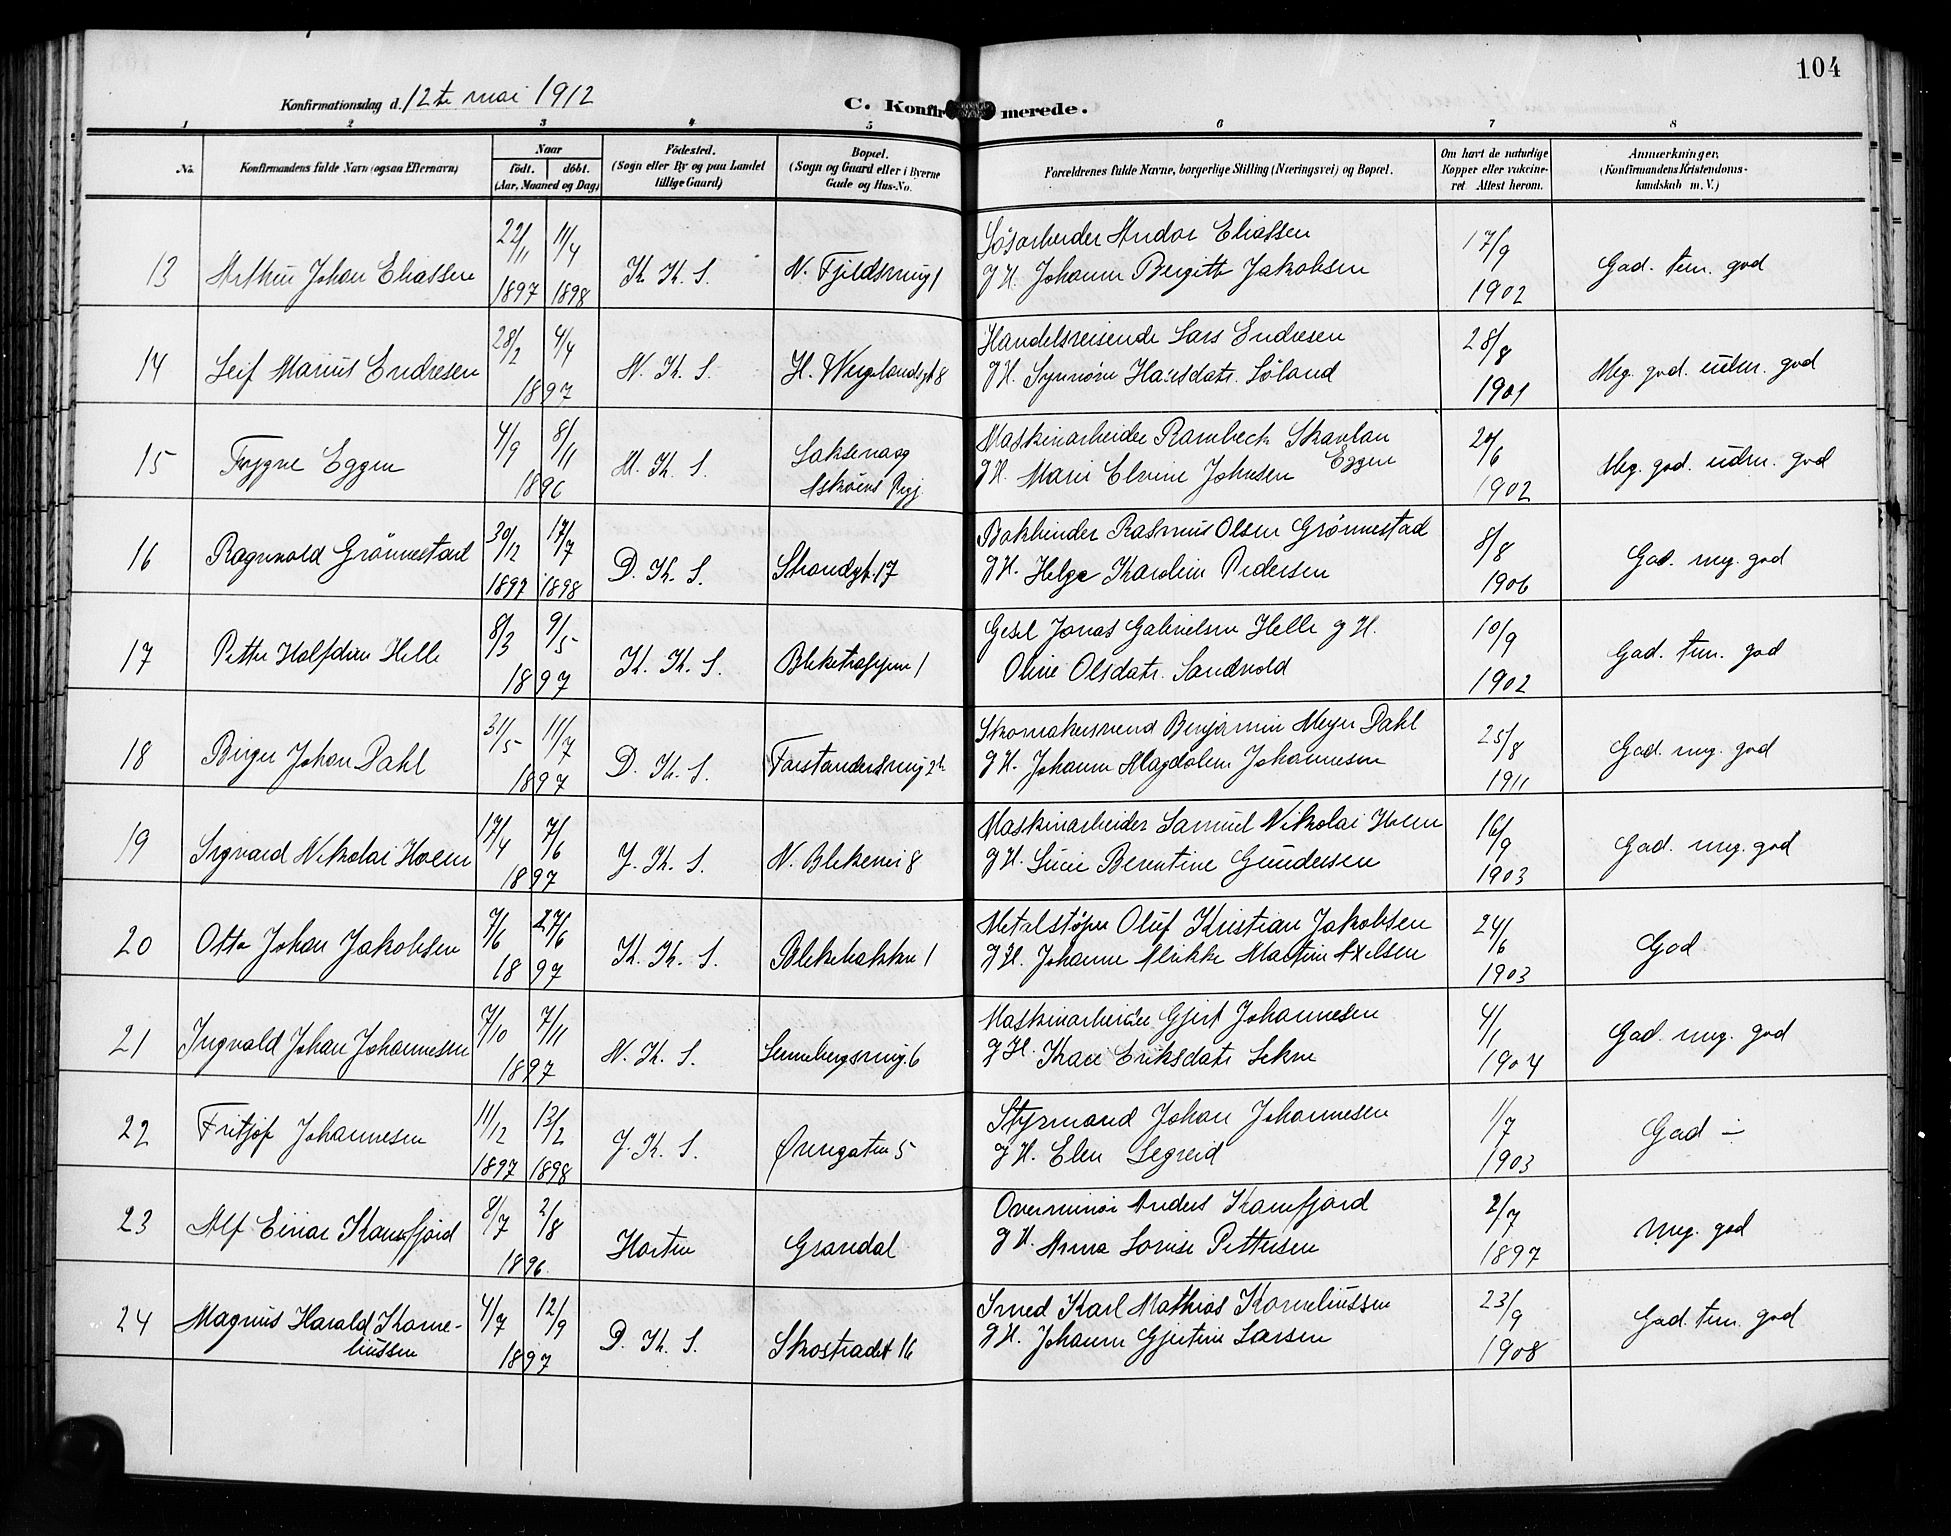 104
Konfirmationsdag d. 12te mai 1912
C. Konfirmerede.
1 2 3 4 5 6 7 8
No. Konfirmandens fulde Navn (ogsaa Efternavn) Naar født. døbt. (Aar, Maaned og Dag) Fødested. (Sogn eller By og paa Landet tillige Gaard) Bopæl. (Sogn og Gaard eller i Byerne Gade og Hus-No. Forældrenes fulde Navne, borgerlige Stilling (Næringsvei) og Bopæl. Om havt de naturlige Kopper eller vakcineret. Attest herom. Anmærkninger. (Konfirmandens Kristendomskundskab m. V.)
13 Arthur Johan Eliassen 22/11 1897 11/4 1898 K. K. S. N. Fjeldsmug 1
Løsarbeider Andor Eliassen
g H. Johanne Bergitte Jakobsen
17/9 1902 God. tem. god
14 Leif Marius Endresen 28/2 4/4 1897 N. K. S. H. Wergelandsgt 8
Handelsreisende Lars Endresen
g H. Synnøve Hansdatr. Løland
28/8 1901 Meg. god. udm. god
15 Trygve Eggen 4/9 8/11 1896 M. K. S. Laksevaag
Askøens Prgj.
Maskinarbeider Rambeck Skavlan Eggen
g H. Marie Elvine Johnsen
20/6 1902 Meg. god. udm. god
16 Ragnvald Grønnestad 30/12 1897 17/7 1898 D. K. S. Strandgt. 17
Bokbinder Rasmus Olsen Grønnestad
g H. Helga Karoline Pedersen
8/8 1906 God. meg. god
17 Petter Halfdan Helle 8/3 9/5 1897 K. K. S. Bleketrappen 1
Gesel Jonas Gabrielsen Helle g H.
Oline Olsdatr. Sandvold
10/9 1902 God. tem. god
18 Birger Johan Dahl 31/5 11/7 1897 D. K. S. Forstandersmug 2b
Skomakersvend Benjamin Meyer Dahl
g H. Johanne Magdalene Johannesen
25/8 1911 God. meg. god
19 Sigvard Nikolai Hoem 17/4 7/6 1897 J. K. S. N. Blekevei 8
Maskinarbeider Samuel Nikolai Hoem
g H. Lucie Berentine Gundersen
16/9 1903 God. meg. god
20 Otto Johan Jakobsen 7/6 27/6 1897 K. K. S. Blekebakken 1
Metalstøper Oluf Kristian Jakobsen
g H. Johanne Alvikke Martine Axelsen
24/6 1903 God
21 Ingvald Johan Johannesen 7/10 7/11 1897 N. K. S. Lennebergsmug. 6
Maskinarbeider Gjert Johannesen
g H. Kari Eriksdatr Sekse
4/1 1904 God. meg. god
22 Fritjof Johannesen 11/12 1897 13/2 1898 J. K. S. Øvregaten 5
Styrmand Johan Johannesen
g H. Elen Segreid
1/7 1903 God -
23 Alf Einar Kanefjord 8/7 2/8 1896. Horten Grandal
Overminør Anders Kanefjord
g H. Anna Lovise Pettersen
2/7 1897 meg. god
24 Magnus Harald Korneliussen 4/7 12/9 1897 D. K. S. Skostrædet 16
Smed Karl Mathias Korneliussen
g H. Johanne Gjertine Larsen
23/9 1908 God. tem. god